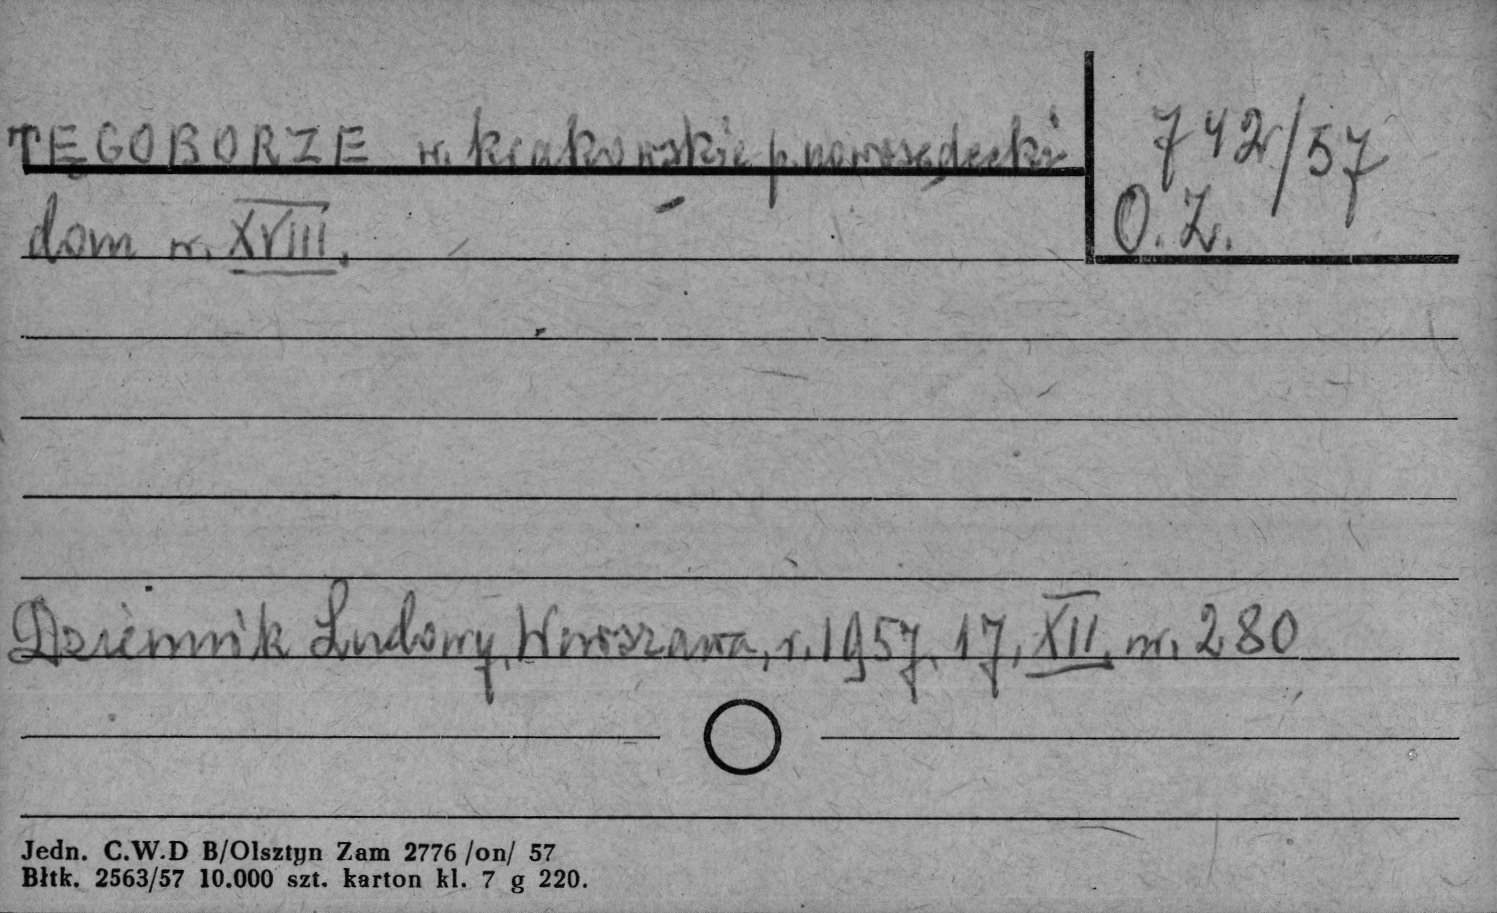 TĘGOBORZE w. krakowskie p. nowosądecki
742/57
O. Z.
dom w. XVIII.
Dziennik Ludowy, Warszawa, r. 1957, 17, XII. nr. 280
Jedn. C.W.D B/Olsztyn Zam 2776 /on/ 57
Błtk. 2563/57 10.000 szt. karton kl. 7 g 220.